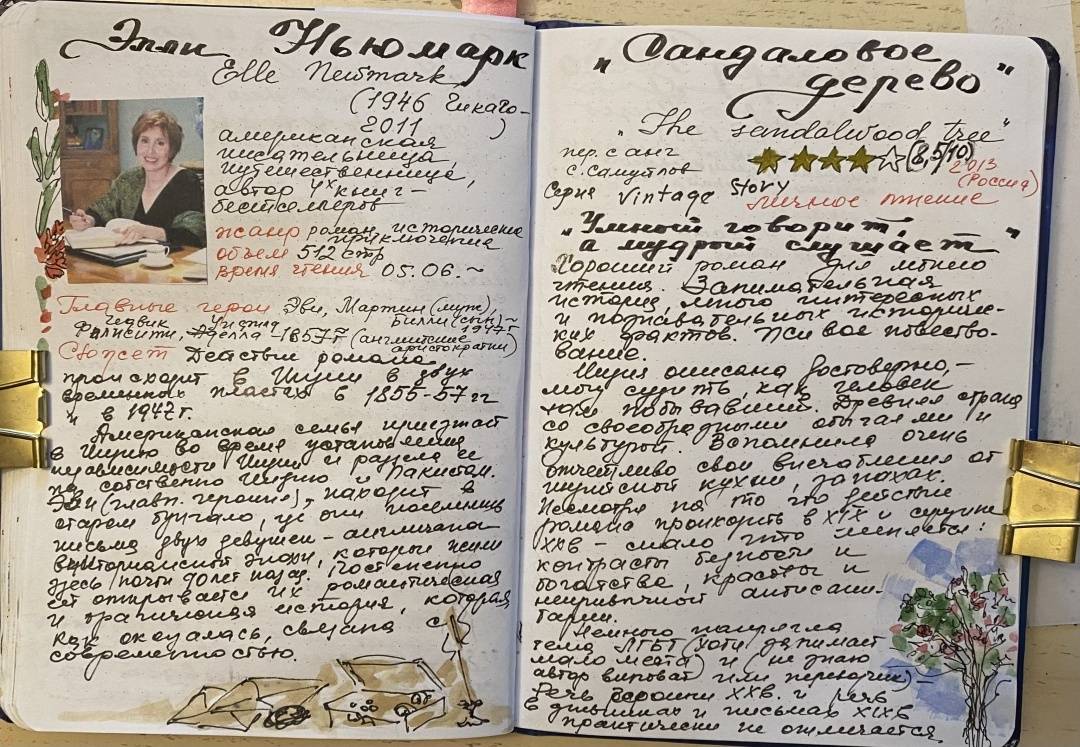 Элли Ньюмарк
Elle Newmark
(1946 Чикаго-
2011 )
американская
писательница,
путешественница,
автор 4х книг-
бестселлеров
жанр роман историческ
приключение
объем 512 стр
время чтения 05.06. ~
Главные герои Эви, Мартин (муж),
Билли (сын) ~
1947г
Фелисити, Адела - 1857г (английские
аристократки)
Сюжет Действие романа
происходит в Индии в двух
временных пластах в 1856-57гг
и в 1947г.
Американская семья приезжает
в Индию во время установления
независимости Индии и раздела ее
на собственно Индию и Пакистан.
Эви (главн. героиня), находит в
старом бунгало, где они поселились
письма двух девушек - англичанок
викторианской эпохи, которые жили
здесь почти 90 лет назад. Постепенно
ей открывается их романтическая
и трагическая история, которая
как оказалась, связана с
современностью.
"Сандаловое
дерево"
"The sandalwood tree"
пер. с анг
с. Самуйлов
(8,5/10)
2013
(Россия)
Серия Vintage Story
личное чтение
"Умный говорит,
а мудрый слушает"
Хороший роман для летнего
чтения. Занимательная
история, много интересных
и познавательных историчес-
ких фактов. Живое повество-
вание.
Индия описана достоверно, -
могу судить, как человек
там побывавший. Древняя страна
со своеобразными обычаями и
культурой. Вспомнила очень
отчетливо свои впечатления от
индийской кухни, запахах.
Несмотря на то что действие
романа происходить в XIX и середине
XXв - мало что меняется:
контрасты бедности и
богатства, красоты и
непривычной антисани-
тарии.
Немного напрягла
тема ЛГБТ (хотя занимает
мало места) и (не знаю
автор виноват или переводчик) -
Речь героини XXв. и речь
в дневниках и письмах XIXв
практически не отличается